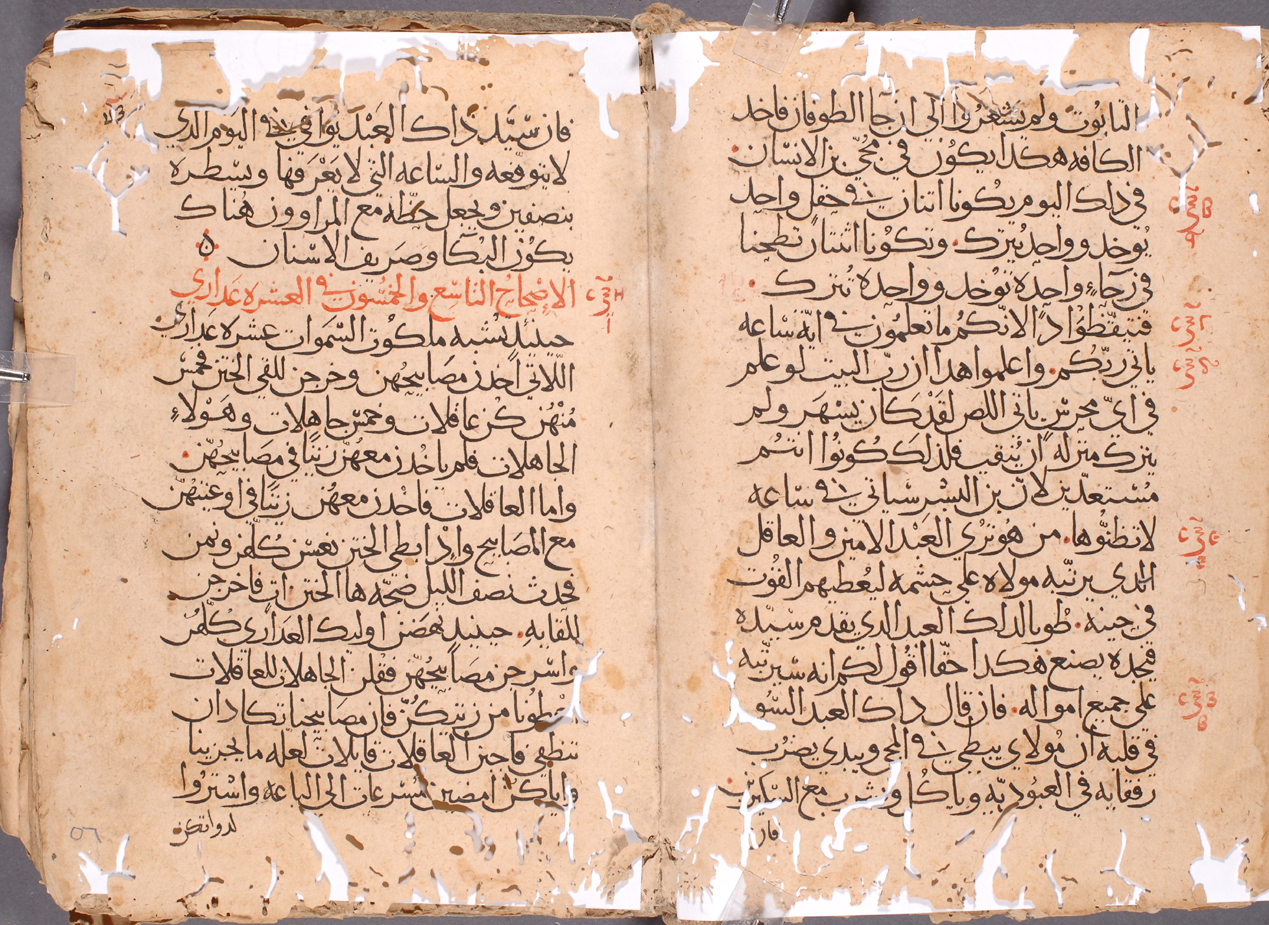 التابوت ولم يشعروا الى ان جا الطوفان فاخد
الكافه هكدا يكون في مجي بن الانسان.
في دلك اليوم يكونا اتنان في حقل واحد
يوخد وواحد يترك. وتكونا اثنتان تطحنا
في رحاء واحدة توخد وواحدة تترك.
فتيقظوا اداً لانكم ما تعلمون في ايّه ساعه
ياتي ربكم. واعلموا هدا ان رب البيت لو علم
في ايّ محرس ياتي اللص لقد كان يسهر ولم
يترك منزله ان ينقب فلدلك كونوا انتم
مستعدين لانّ بن البشر سياتي في ساعه
لا تظنوها. من هو ترى العبد الامين والعاقل
الدي يرتبه مولاه على حشمه ليعطيهم القوت
في حينه. طوبا لداك العبد الدي يقدم سيده
فيجده يصنع هكدا حقا اقول لكم انه سيرتبه
على جميع امواله. فان قال داك العبد السو
في قلبه ان مولاي يبطي في المجي ويبدي يضرب
رفقايه في العبوديه وياكل ويشرب مع السكيرين
فان
فان سيد داك العبد يوافي في اليوم الدي
لا يتوقعه والساعه التي لا يعرفها ويشطره
بنصفين ويجعل حظه مع المراوون هناك
يكون البكا وصريف الاسنان ه
الاصحاح التاسع والخمسون في العشرة عداري
حينيدٍ تشبه ملكوت السموات عشرة عداري
اللاتي اخدن مصابيحهن وخرجن للقي الختن فخمس
منهن كن عاقلات وخمس جاهلات وهولاء
الجاهلات فلم ياخدن معهن زيتا في مصابيحهن.
واما العاقلات فاخدن معهن زيتا في اوعيتهن
مع المصابيح واد ابطى الختن نعسن كلهن ونمن
فحدث نصف الليل ضجّه ها الختن ات فاخرجن
للقايه. حينيد نهضن اوليك العداري كلهن
واسرجن مصابيحهن فقلن الجاهلات للعاقلات
اعطونا من زيتكن فان مصابيحنا تكاد ان
تنطفي فاجبن العاقلات قايلات لعله ما يجرينا
واياكن امضين مسرعات الى الباعه واشتروا
لدواتكن